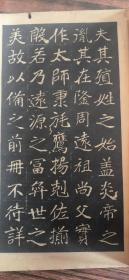 夫其殖姓之始盖炎帝之
胤其在隆周遠祖尚父實
作太師秉旄鷹揚剋佐揃
殷若乃遠源之冨弈世之
美故以俻之前冊不待詳